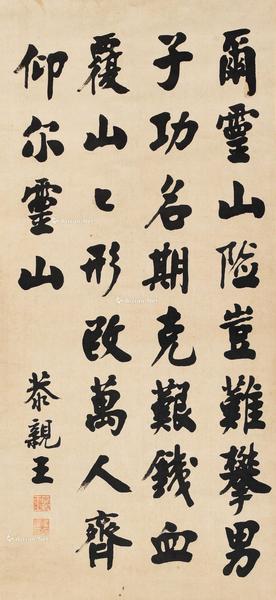 爾靈山险豈難攀男
子功名期克艱鋳血
覆山〻形改萬人齊
仰尔靈山
恭親王